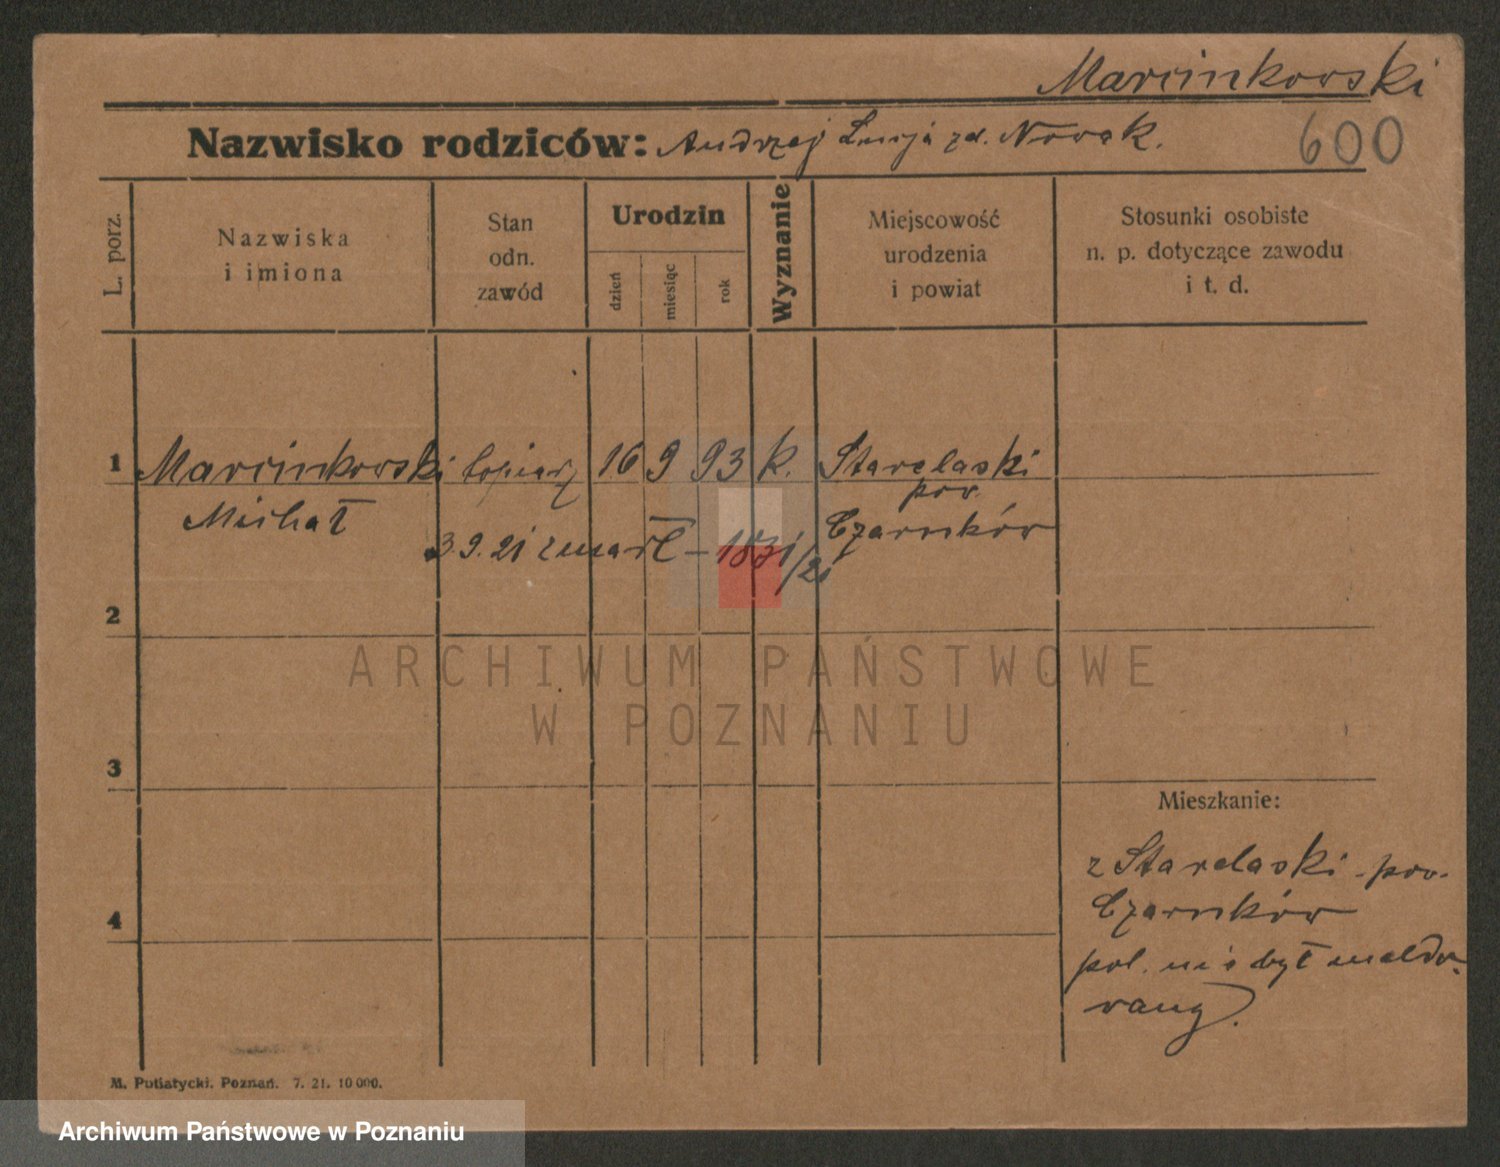 Marcinkowski
Nazwisko rodziców: Andrzej Łucja zd. Nowak.
600
L. porz.
Nazwiska
i imiona
Stan
odn.
zawód
Urodzin
dzień
miesiąc
rok
Wyznanie
Miejscowość
urodzenia
i powiat
Stosunki osobiste
n. p. dotyczące zawodu
i t. d.
1 Marcinkowski 16 9 93 k.
Michał
pow.
Czarnków
3.9.21 zmarł – 1831/21
2
ARCHIWUM PAŃSTWOWE
W POZNANIU
3
Mieszkanie:
z pow.
Czarnków
4
pol. nie był meldo-
wany.
M. Putiatycki. Poznań. 7. 21. 10 000.
Archiwum Państwowe w Poznaniu